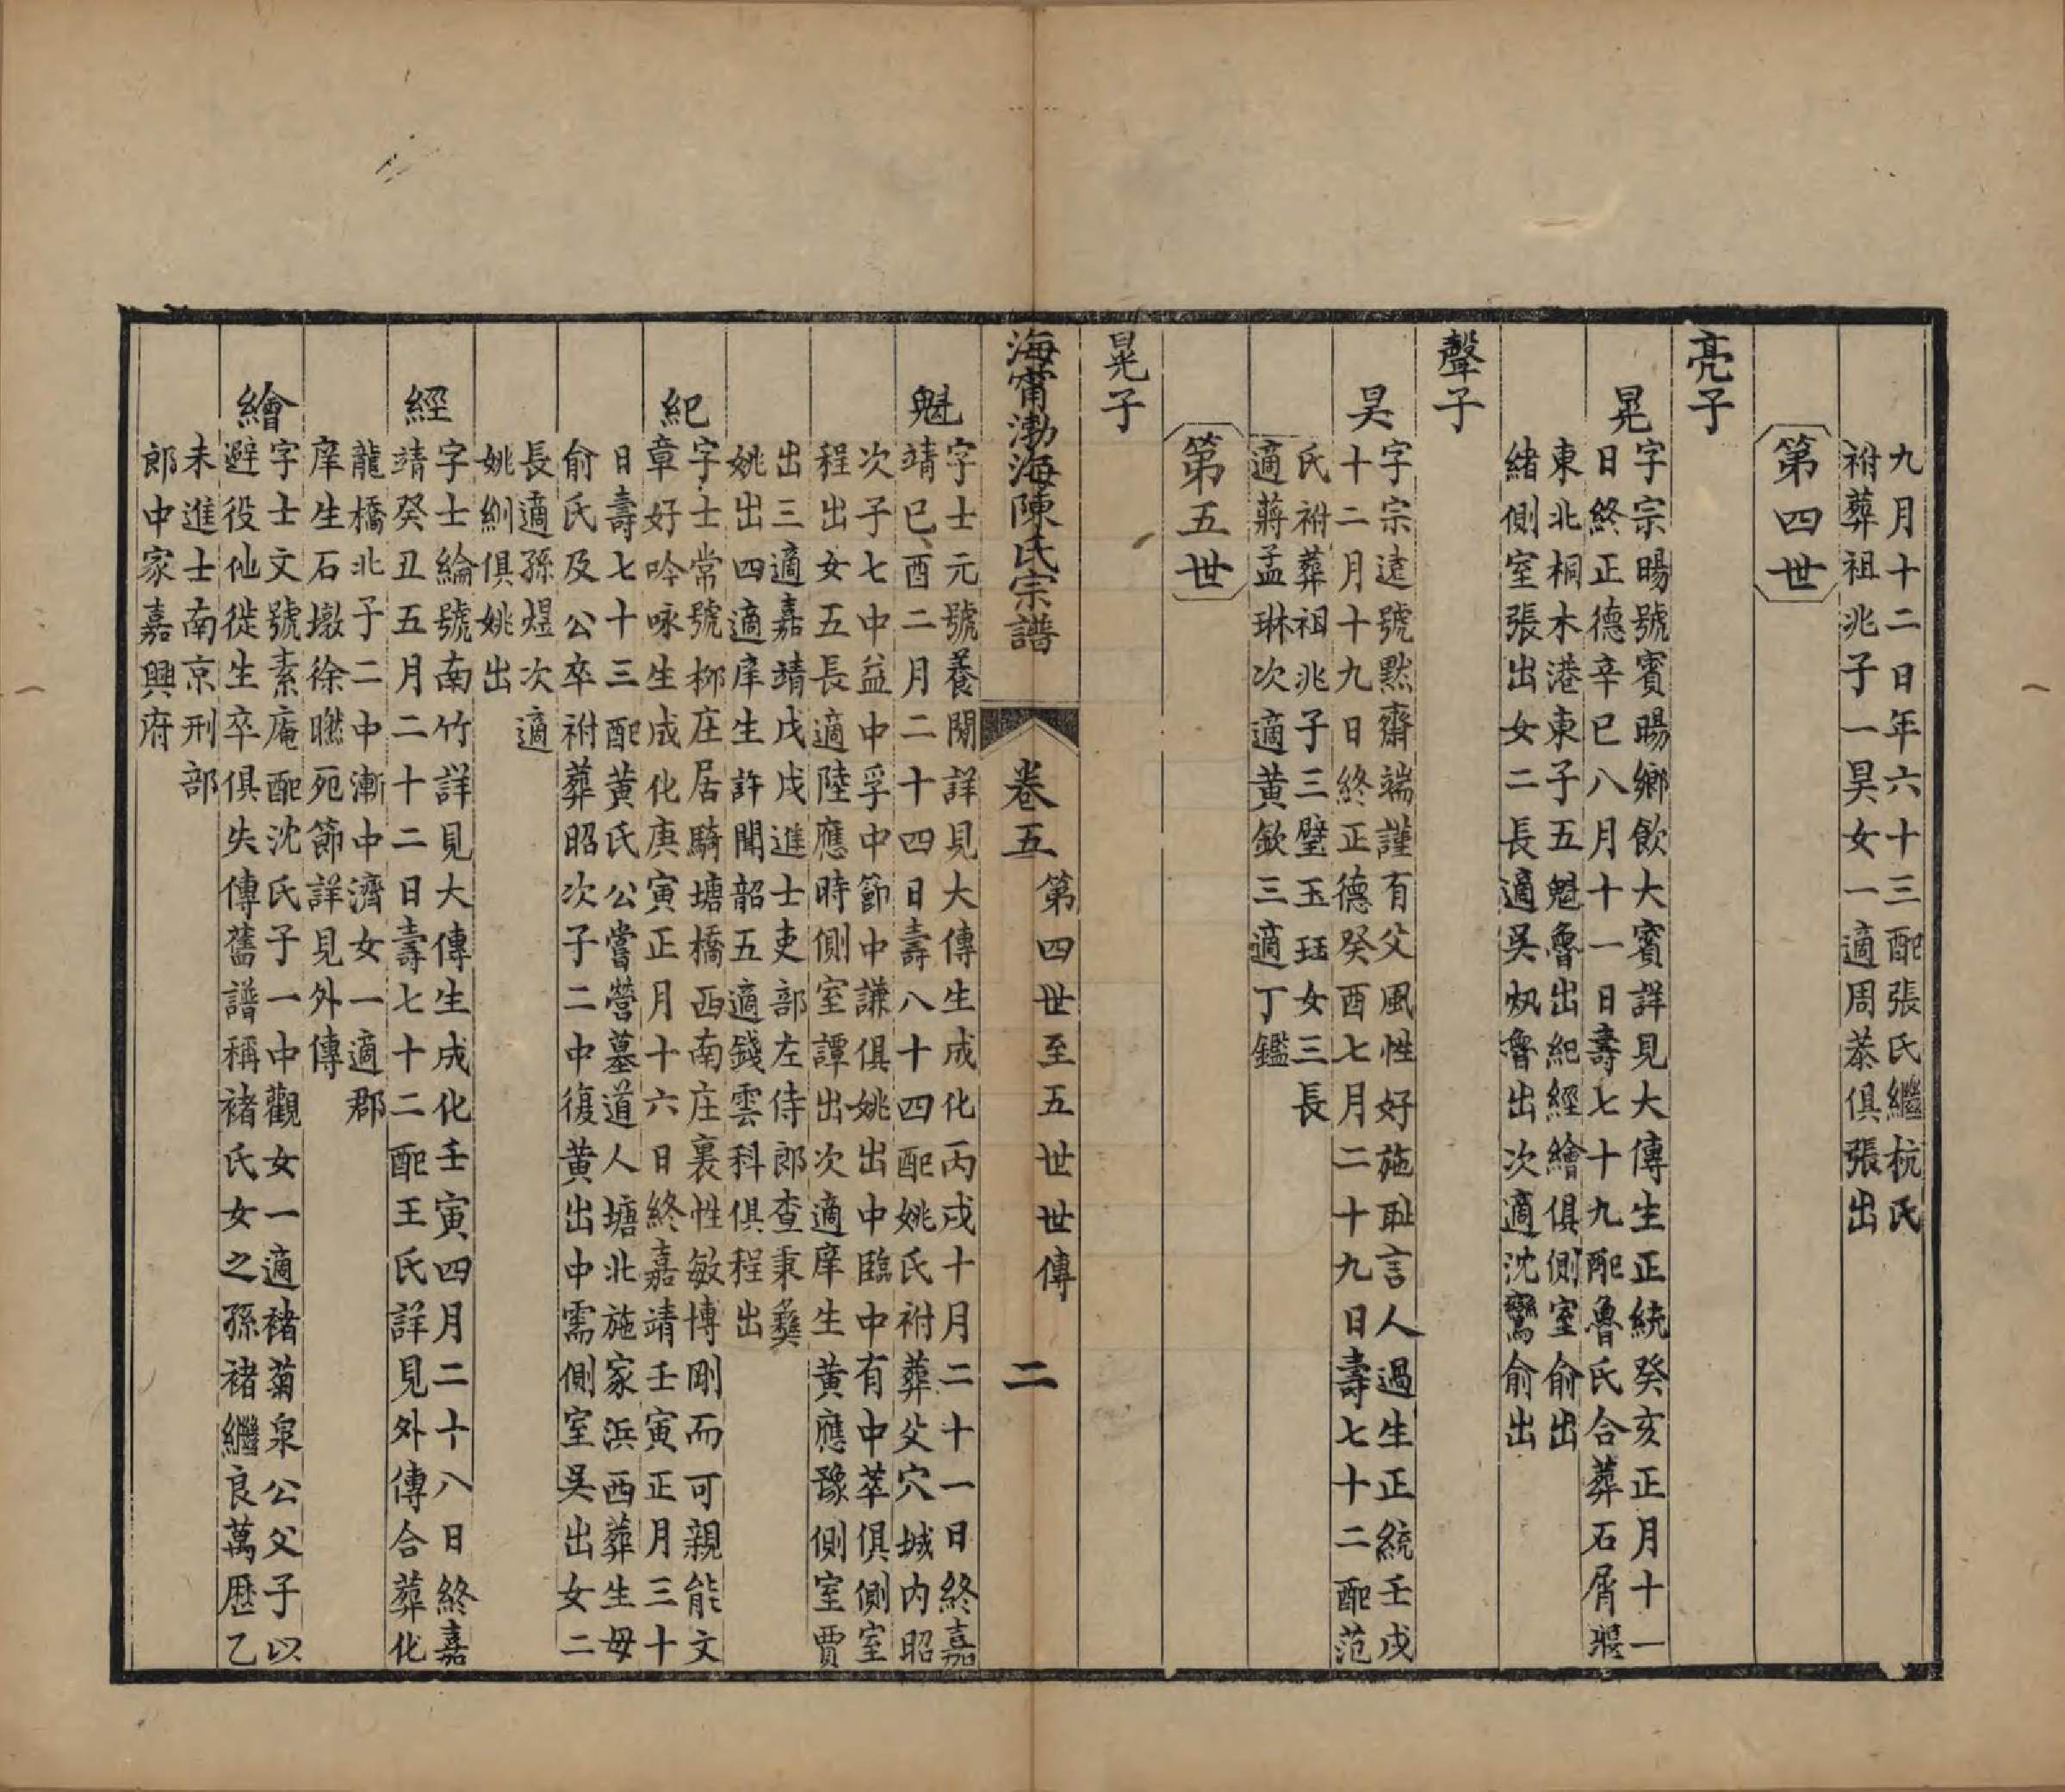 九月十二日年六十三配張氏繼杭氏
祔葬祖兆子一昊女一適周萘俱張出
第四世
亮子
晃
字宗暘號賓暘鄉飲大賓詳見大傳生正統癸亥正月十一
日終正德辛巳八月十一日壽七十九配魯氏合葬石屑堰
東北桐木港東子五魁魯出紀經繪俱側室俞出
緒側室張出女二長適吳㶷魯出次適沈鸞俞出
聲子
昊
字宗遠號默齋端謹有父風性好施恥言人過生正統壬戌
十二月十九日終正德癸酉七月二十九日壽七十二配范
氏祔葬祖兆子三璧玉珏女三長
適蔣孟琳次適黃欽三適丁鑑
第五世
晃子
海甯渤海陳氏宗譜
卷五
第四世至五世世傳
二
魁
字士元號養閒詳見大傳生成化丙戌十月二十一日終嘉
靖己酉二月二十四日壽八十四配姚氏祔葬父穴城內昭
次子七中益中孚中節中謙俱姚出中臨中有中萃俱側室
程出女五長適陸應時側室譚出次適庠生黃應豫側室賈
出三適嘉靖戊戌進士吏部左侍郎查秉彝
姚出四適庠生許聞韶五適錢雲科俱程出
紀
字士常號柳庄居騎塘橋西南庄裏性敏博剛而可親能文
章好吟咏生成化庚寅正月十六日終嘉靖壬寅正月三十
日壽七十三配黃氏公嘗營墓道人塘北施家浜西葬生母
俞氏及公卒祔葬昭次子二中復黃出中需側室吳出女二
長適孫煜次適
姚紃俱姚出
經
字士綸號南竹詳見大傳生成化壬寅四月二十八日終嘉
靖癸丑五月二十二日壽七十二配王氏詳見外傳合葬化
龍橋北子二中漸中濟女一適郡
庠生石墩徐𤓰苑節詳見外傳
繪
字士文號素庵配沈氏子一中觀女一適褚菊泉公父子以
避役仙徙生卒俱失傳舊譜稱褚氏女之孫褚繼良萬曆乙
未進士南京刑部
郎中家嘉興府